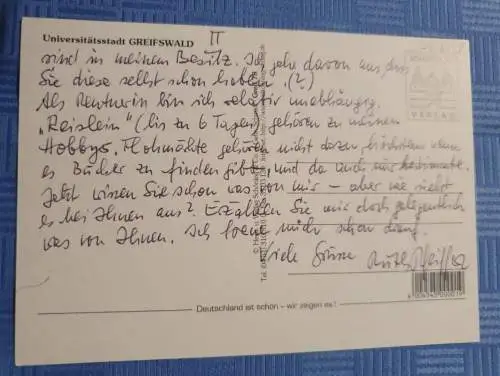 Universitätsstadt GREIFSWALD II
sind in meinem Besitz. Ich gehe davon aus, dass
Sie diese selbst schon haben. (?)
Als Rentnerin bin ich relativ unabhängig.
"Reislein" (bis zu 6 Tagen) gehören zu meinen
Hobbys. Flohmärkte gehören nicht dazu, höchstens wenn
es Bücher zu finden gibt, und da auch nur bestimmte.
Jetzt wissen Sie schon was von mir – aber wie sieht
es bei Ihnen aus? Erzählen Sie mir doch gelegentlich
was von Ihnen. Ich freue mich schon drauf.
Viele Grüsse Ruth Pfeiffer
VERLAG
Deutschland ist schön – wir zeigen es!